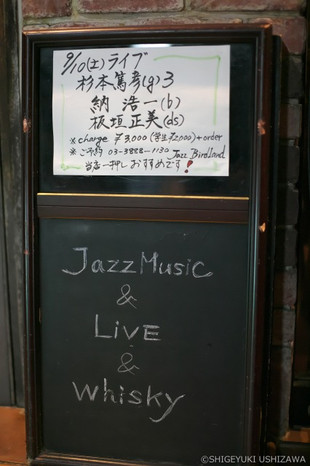 9/10(土)ライブ
杉本篤彦(g)3
納 浩一(b)
板垣正美(ds)
※charge ¥3,000(学生¥2,000)+order
※ご予約 03-3888-1130 Jazz Birdland
当店一押しおすすめです!
JazzMusic
&
LiVE
&
Whisky
©SHIGEYUKI USHIZAWA